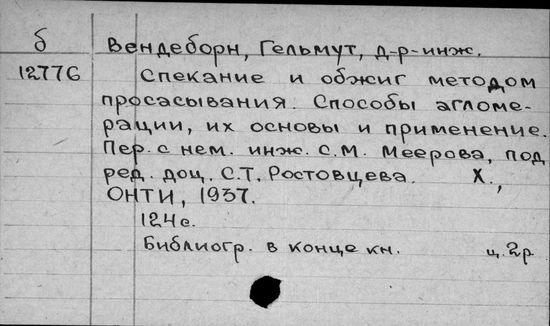 б
Вендеборн, Гельмут, д-р-инж.
12776
Спекание и обжиг методом
просасывания. Способы агломе-
рации, их основы и применение.
Пер. с нем. инж. С.М. Меерова, под
ред. доц. С.Т. Ростовцева. Х.,
ОНТИ, 1937.
124с.
Библиогр. в конце кн. ц. 2р